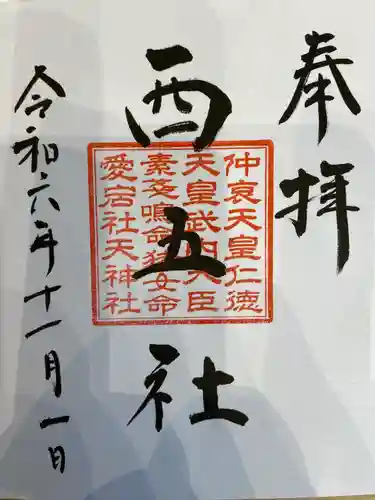 奉拝
西五社
仲哀天皇仁徳
天皇武内大臣
素戔鳴命猿女命
愛宕社天神社
令和六年十一月一日